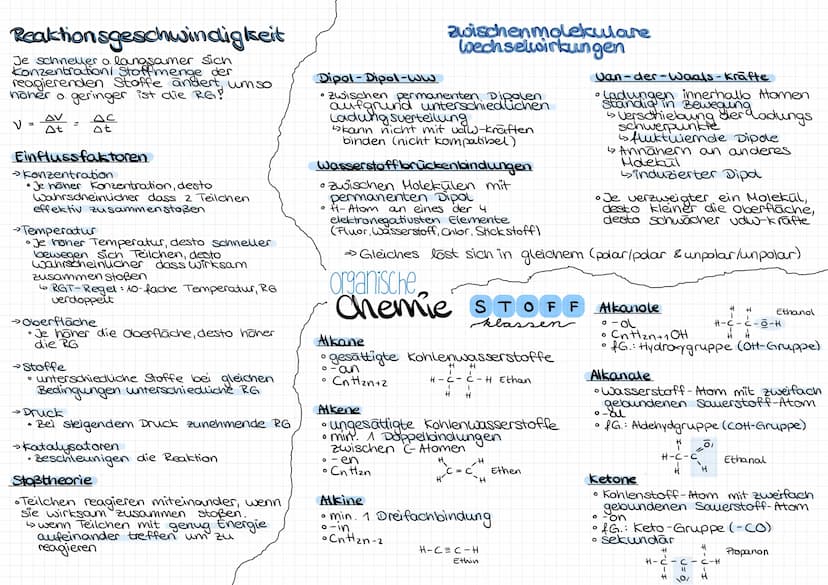 Reaktionsgeschwindigkeit
Je schneller o. langsamer sich
Konzentration/Stoffmenge der
reagierenden Stoffe ändert, umso
höher o. geringer ist die RG!
V = ΔV/Δt = ΔC/Δt
Einflussfaktoren
→Konzentration
• Je höher Konzentration, desto
wahrscheinlicher dass 2 Teilchen
effektiv zusammenstoßen
→Temperatur
• Je höher Temperatur, desto schneller
bewegen sich Teilchen, desto
wahrscheinlicher dass wirksam
zusammenstoßen
↳ RGT-Regel: 10-fache Temperatur, RG
verdoppelt
→Oberfläche
• Je höher die Oberfläche, desto höher
die RG
→Stoffe
• unterschiedliche Stoffe bei gleichen
Bedingungen unterschiedliche RG
→Druck
• Bei steigendem Druck zunehmende RG
→Katalysatoren
• Beschleunigen die Reaktion
Stoßtheorie
•Teilchen reagieren miteinander, wenn
sie wirksam zusammen stoßen.
↳ wenn Teilchen mit genug Energie
aufeinander treffen um zu
reagieren
zwischenmolekulare
Wechselwirkungen
Dipol-Dipol-WW
•zwischen permanenten Dipolen
aufgrund unterschiedlichen
Ladungsverteilung
↳kann nicht mit vdW-Kräften
binden (nicht kompatibel)
Wasserstoffbrückenbindungen
• zwischen Molekülen mit
permanenten Dipol
• H-Atom an eines der 4
elektronegativsten Elemente
(Fluor, Wasserstoff, Chlor, Stickstoff)
Van-der-Waals-Kräfte
•Ladungen innerhalb Atomen
ständig in Bewegung
↳ Verschiebung der Ladungs
schwerpunkte
↳ fluktuiernde Dipole
↳ Annähern an anderes
Molekül
↳induzierter Dipol
•Je verzweigter ein Molekül,
desto kleiner die Oberfläche,
desto schwächer vdW-Kräfte
⇒ Gleiches löst sich in gleichem (polar/polar & unpolar/unpolar)
organische
Chemie STOFF
klassen
Alkane
• gesättigte Kohlenwasserstoffe
• -an
• CnH2n+2
H H
H-C-C-H Ethan
H H
Alkene
• ungesättigte Kohlenwasserstoffe
• min. 1 Doppelbindungen
zwischen C-Atomen
• -en
• CnH2n
H H
C=C Ethen
H H
Alkine
• min. 1 Dreifachbindung
• -in
• CnH2n-2
H-C≡C-H
Ethin
Alkanole
• -ol
• CnH2n+1OH
• fG.: Hydroxygruppe (OH-Gruppe)
H H Ethanol
H-C-C-O-H
H H
Alkanale
•Wasserstoff-Atom mit zweifach
gebundenen Sauerstoff-Atom
• -al
• fG.: Aldehydgruppe (COH-Gruppe)
H O
H-C-C Ethanal
H H
Ketone
• Kohlenstoff-Atom mit zweifach
gebundenen Sauerstoff-Atom
• -on
• fG.: Keto-Gruppe (-CO)
• sekundär
H H Propanon
H-C-C-C-H
H O H